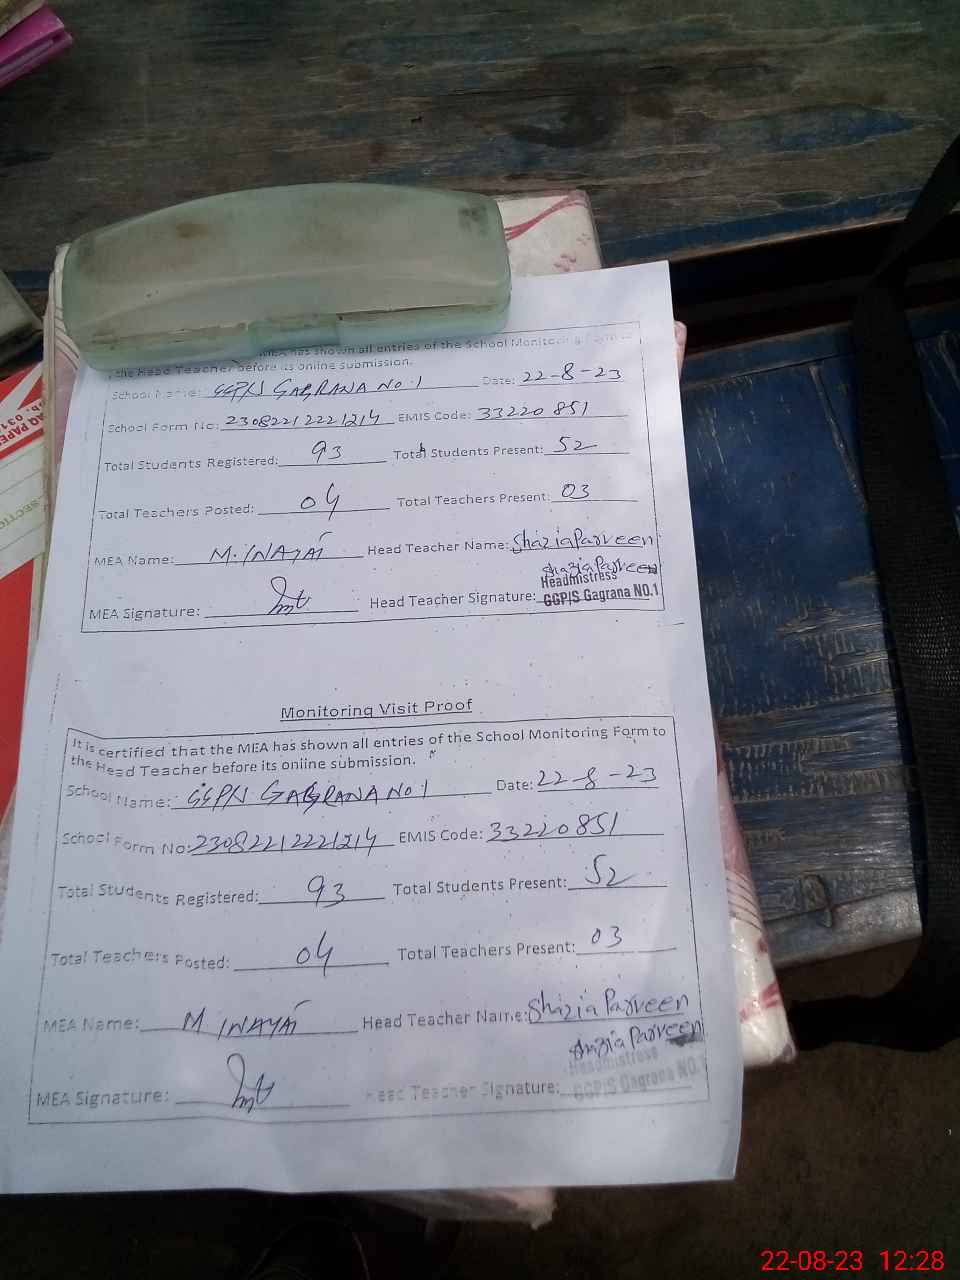 MEA has shown all entries of the School Monitoring Form to
the Head Teacher before its online submission.
School Name: GGPS GAGRANA No.1 Date: 22-8-23
School Form No: 23082212221214 EMIS Code: 33220851
Total Students Registered: 93 Total Students Present: 52
Total Teachers Posted: 04 Total Teachers Present: 03
MEA Name: M. INAYAT Head Teacher Name: Shazia Parveen
Shazia Parveen
Headmistress
MEA Signature: Head Teacher Signature: GGP/S Gagrana NO.1
Monitoring Visit Proof
It is certified that the MEA has shown all entries of the School Monitoring Form to
the Head Teacher before its online submission.
School Name: GGPS GAGRANA No 1 Date: 22-8-23
School Form No: 23082212221214 EMIS Code: 33220851
Total Students Registered: 93 Total Students Present: 52
Total Teachers Posted: 04 Total Teachers Present: 03
MEA Name: M INAYAT Head Teacher Name: Shazia Parveen
Shazia Parveen
Headmistress
MEA Signature: Head Teacher Signature: GGP/S Gagrana NO.1
22-08-23 12:28